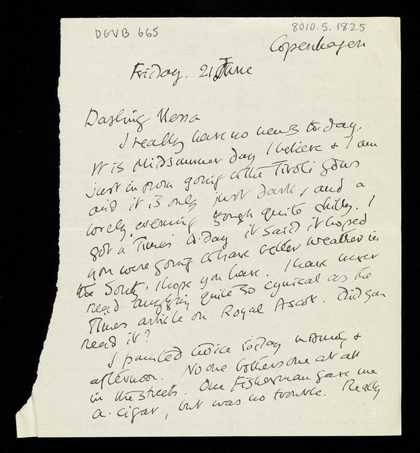 DGVB 665
8010.5.1825
Copenhagen
Friday. 21 June
Darling Nessa
I really have no news today.
It is Midsummer day I believe & I am
just in from going to the Tivoli Gdns
and it is only just dark, and a
lovely evening though quite chilly. I
got a Times today it said it hoped
you were going to have better weather in
the South, I hope you have. I have never
read anything quite so cynical as the
Times article on Royal Ascot. Did you
read it?
I painted twice today morning &
afternoon. No one bothers one at all
in the streets. One Fisherman gave me
a cigar, but was no trouble. Really